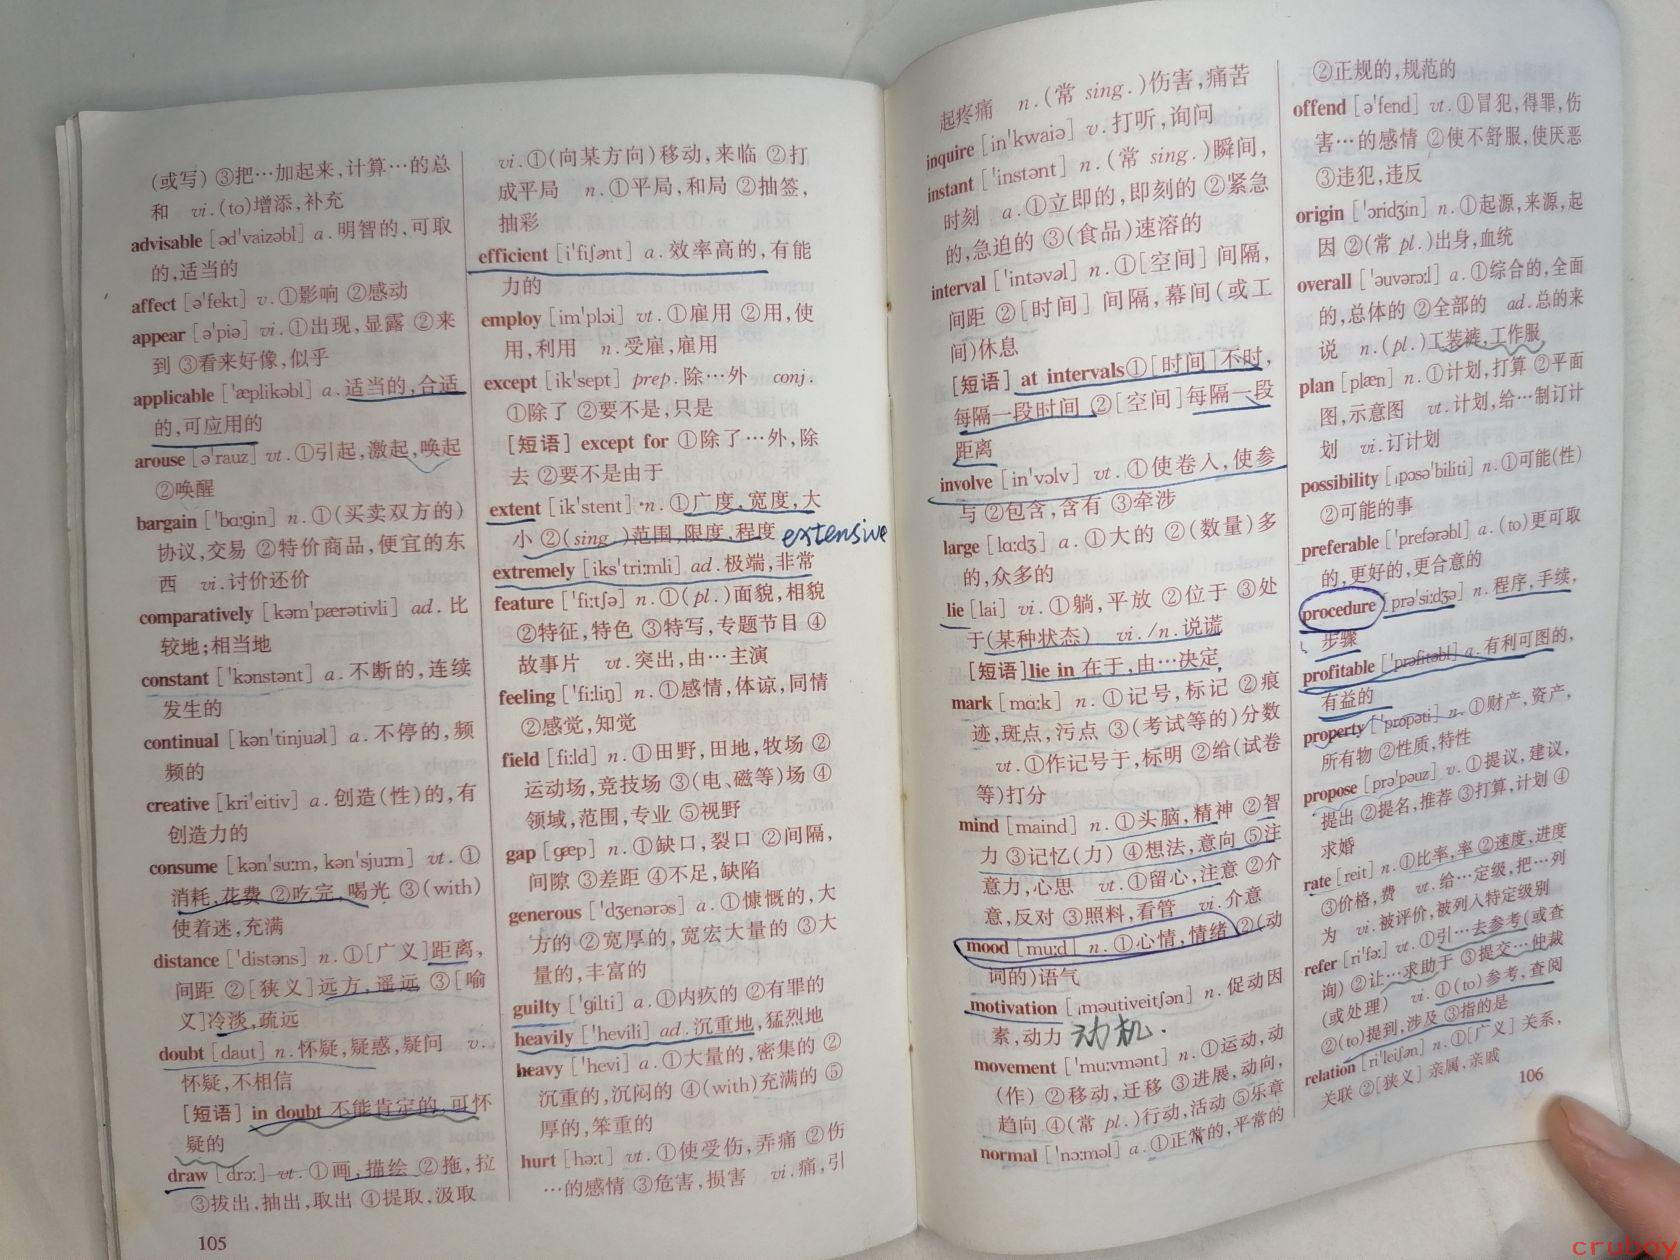 (或写) ③把…加起来,计算…的总
和 vi.(to)增添,补充
advisable [əd'vaizəbl] a.明智的,可取
的,适当的
affect [ə'fekt] v.①影响 ②感动
appear [ə'piə] vi.①出现,显露 ②来
到 ③看来好像,似乎
applicable ['æplikəbl] a.适当的,合适
的,可应用的
arouse [ə'rauz] vt.①引起,激起,唤起
②唤醒
bargain ['bɑ:gin] n.①(买卖双方的)
协议,交易 ②特价商品,便宜的东
西 vi.讨价还价
comparatively [kəm'pærətivli] ad.比
较地;相当地
constant ['kɔnstənt] a.不断的,连续
发生的
continual [kən'tinjuəl] a.不停的,频
频的
creative [kri'eitiv] a.创造(性)的,有
创造力的
consume [kən'su:m, kən'sju:m] vt.①
消耗,花费 ②吃完,喝光 ③(with)
使着迷,充满
distance ['distəns] n.①[广义]距离,
间距 ②[狭义]远方,遥远 ③[喻
义]冷淡,疏远
doubt [daut] n.怀疑,疑惑,疑问 v.
怀疑,不相信
[短语] in doubt 不能肯定的,可怀
疑的
draw [drɔ:] vt.①画,描绘 ②拖,拉
③拔出,抽出,取出 ④提取,汲取
105
vi.①(向某方向)移动,来临 ②打
成平局 n.①平局,和局 ②抽签,
抽彩
efficient [i'fiʃənt] a.效率高的,有能
力的
employ [im'plɔi] vt.①雇用 ②用,使
用,利用 n.受雇,雇用
except [ik'sept] prep.除…外 conj.
①除了 ②要不是,只是
[短语] except for ①除了…外,除
去 ②要不是由于
extent [ik'stent] n.①广度,宽度,大
小 ②(sing.)范围,限度,程度 extensive
extremely [iks'tri:mli] ad.极端,非常
feature ['fi:tʃə] n.①(pl.)面貌,相貌
②特征,特色 ③特写,专题节目 ④
故事片 vt.突出,由…主演
feeling ['fi:liŋ] n.①感情,体谅,同情
②感觉,知觉
field [fi:ld] n.①田野,田地,牧场 ②
运动场,竞技场 ③(电、磁等)场 ④
领域,范围,专业 ⑤视野
gap [gæp] n.①缺口,裂口 ②间隔,
间隙 ③差距 ④不足,缺陷
generous ['dʒenərəs] a.①慷慨的,大
方的 ②宽厚的,宽宏大量的 ③大
量的,丰富的
guilty ['gilti] a.①内疚的 ②有罪的
heavily ['hevili] ad.沉重地,猛烈地
heavy ['hevi] a.①大量的,密集的 ②
沉重的,沉闷的 ④(with)充满的 ⑤
厚的,笨重的
hurt [hə:t] vt.①使受伤,弄痛 ②伤
…的感情 ③危害,损害 vi.痛,引
起疼痛 n.(常 sing.)伤害,痛苦
inquire [in'kwaiə] v.打听,询问
instant ['instənt] n.(常 sing.)瞬间,
时刻 a.①立即的,即刻的 ②紧急
的,急迫的 ③(食品)速溶的
interval ['intəvəl] n.①[空间] 间隔,
间距 ②[时间] 间隔,幕间(或工
间)休息
[短语] at intervals①[时间]不时,
每隔一段时间 ②[空间]每隔一段
距离
involve [in'vɔlv] vt.①使卷入,使参
与 ②包含,含有 ③牵涉
large [lɑ:dʒ] a.①大的 ②(数量)多
的,众多的
lie [lai] vi.①躺,平放 ②位于 ③处
于(某种状态) vi./n.说谎
[短语]lie in 在于,由…决定
mark [mɑ:k] n.①记号,标记 ②痕
迹,斑点,污点 ③(考试等的)分数
vt.①作记号于,标明 ②给(试卷
等)打分
mind [maind] n.①头脑,精神 ②智
力 ③记忆(力) ④想法,意向 ⑤注
意力,心思 vt.①留心,注意 ②介
意,反对 ③照料,看管 vi.介意
mood [mu:d] n.①心情,情绪 ②(动
词的)语气
motivation [ˌməutiveitʃən] n.促动因
素,动力 动机.
movement ['mu:vmənt] n.①运动,动
(作) ②移动,迁移 ③进展,动向,
趋向 ④(常 pl.)行动,活动 ⑤乐章
normal ['nɔ:məl] a.①正常的,平常的
②正规的,规范的
offend [ə'fend] vt.①冒犯,得罪,伤
害…的感情 ②使不舒服,使厌恶
③违犯,违反
origin ['ɔridʒin] n.①起源,来源,起
因 ②(常 pl.)出身,血统
overall ['əuvərɔ:l] a.①综合的,全面
的,总体的 ②全部的 ad.总的来
说 n.(pl.)工装裤,工作服
plan [plæn] n.①计划,打算 ②平面
图,示意图 vt.计划,给…制订计
划 vi.订计划
possibility [ˌpɔsə'biliti] n.①可能(性)
②可能的事
preferable ['prefərəbl] a.(to)更可取
的,更好的,更合意的
procedure [prə'si:dʒə] n.程序,手续,
步骤
profitable ['prɔfitəbl] a.有利可图的,
有益的
property ['prɔpəti] n.①财产,资产,
所有物 ②性质,特性
propose [prə'pəuz] v.①提议,建议,
提出 ②提名,推荐 ③打算,计划 ④
求婚
rate [reit] n.①比率,率 ②速度,进度
③价格,费 vt.给…定级,把…列
为 vi.被评价,被列入特定级别
refer [ri'fə:] vt.①引…去参考(或查
询) ②让…求助于 ③提交…仲裁
(或处理) vi.①(to)参考,查阅
②(to)提到,涉及 ③指的是
relation [ri'leiʃən] n.①[广义] 关系,
关联 ②[狭义] 亲属,亲戚
106
cruboy